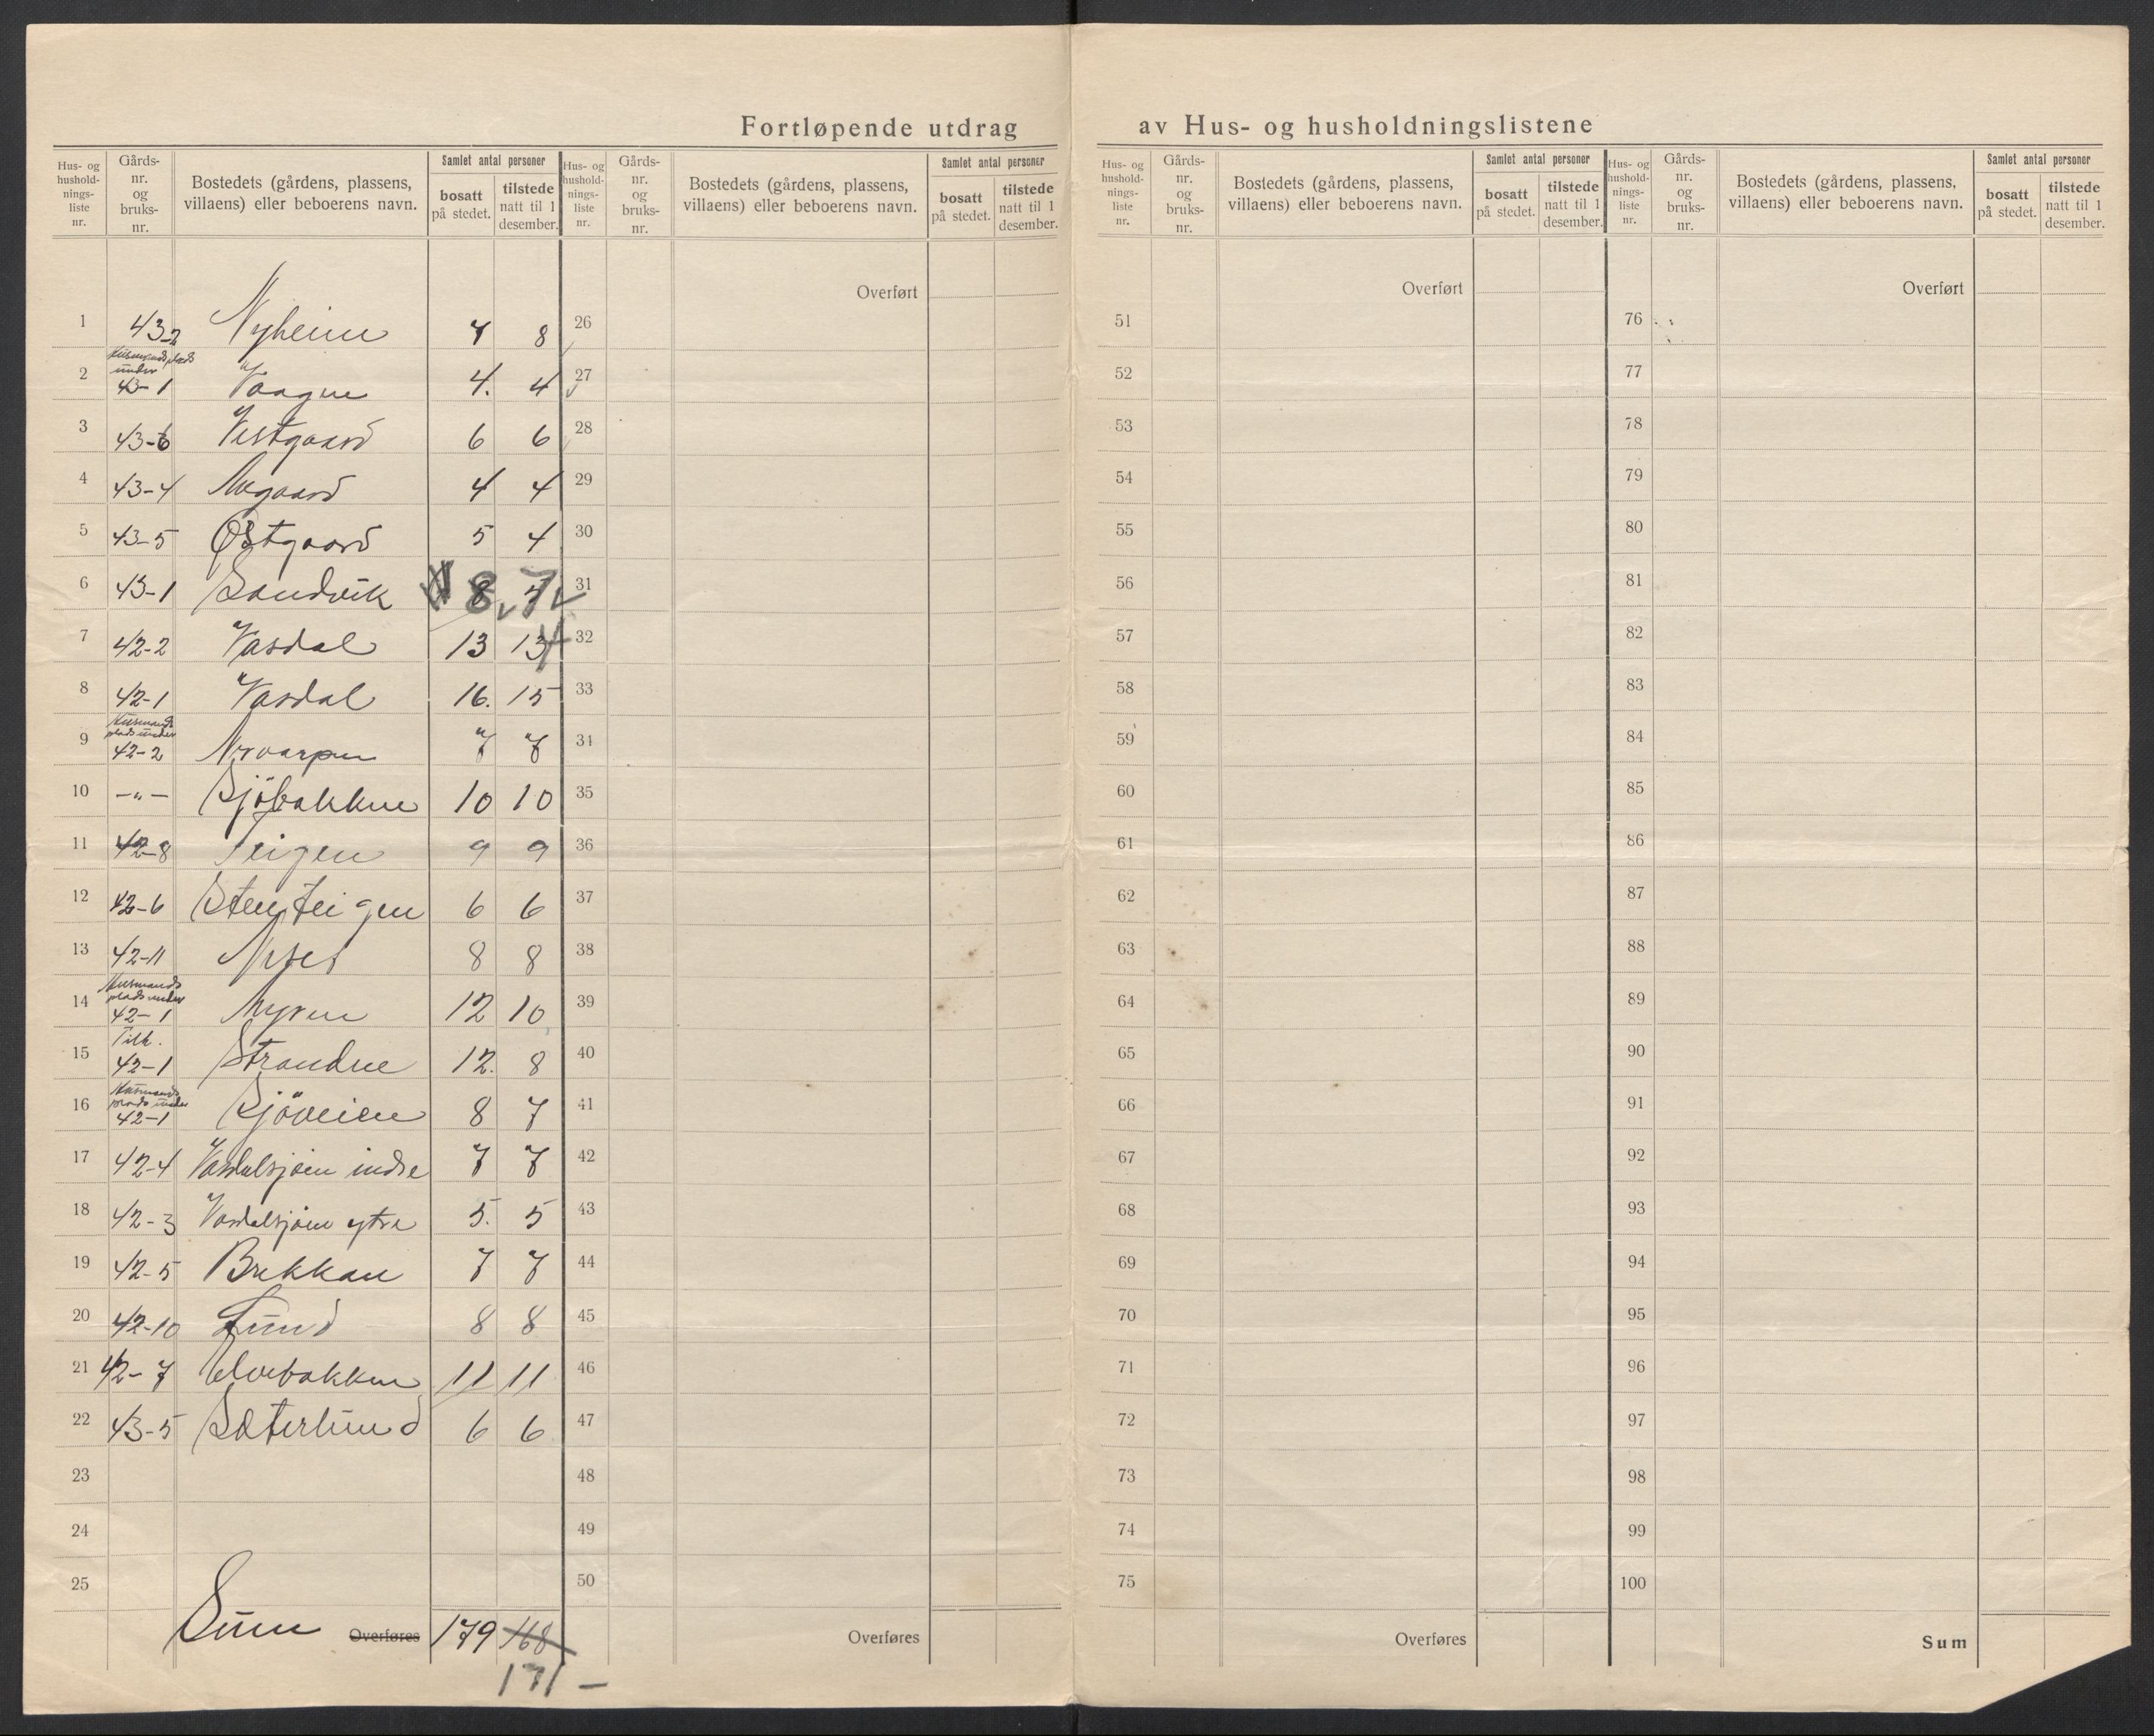 Fortløpende utdrag av Hus- og husholdningslistene
Hus- og hushold-nings-liste nr. Gårds-nr. og bruks-nr. Bostedets (gårdens, plassens, villaens) eller beboerens navn. Samlet antal personer bosatt på stedet. tilstede natt til 1 desember.
Hus- og hushold-nings-liste nr. Gårds-nr. og bruks-nr. Bostedets (gårdens, plassens, villaens) eller beboerens navn. Samlet antal personer bosatt på stedet. tilstede natt til 1 desember.
Hus- og hushold-nings-liste nr. Gårds-nr. og bruks-nr. Bostedets (gårdens, plassens, villaens) eller beboerens navn. Samlet antal personer bosatt på stedet. tilstede natt til 1 desember.
Hus- og hushold-nings-liste nr. Gårds-nr. og bruks-nr. Bostedets (gårdens, plassens, villaens) eller beboerens navn. Samlet antal personer bosatt på stedet. tilstede natt til 1 desember.
Overført Overført Overført
1 43-2 Nyheim 7 8 26 51 76
2 Husmandsplads under 43-1 Vaagen 4. 4 27 52 77
3 43-6 Vestgaard 6 6 28 53 78
4 43-4 4 4 29 54 79
5 43-5 Østgaard 5 4 30 55 80
6 43-1 Sandvik 8 7 31 56 81
7 42-2 Vasdal 13 13 32 57 82
8 42-1 Vasdal 16. 15 33 58 83
9 Husmandsplads under 42-2 7 7 34 59 84
10 -"- Sjöbakken 10 10 35 60 85
11 42-8 Teigen 9 9 36 61 86
12 42-6 Stenteigen 6 6 37 62 87
13 42-11 8 8 38 63 88
14 Husmandsplads under 42-1 Myren 12 10 39 64 89
15 Tilh. 42-1 Strandne 12. 8 40 65 90
16 Husmandsplads under 42-1 Sjöveien 8 7 41 66 91
17 42-4 Vasdalsjöen indre 7 7 42 67 92
18 42-3 Vasdalsjöen ytre 5. 5 43 68 93
19 42-5 Brekkan 7 7 44 69 94
20 42-10 Lund 8 8 45 70 95
21 42-7 Elvebakken 11 11 46 71 96
22 43-5 Sæterlund 6 6 47 72 97
23 48 73 98
24 49 74 99
25 50 75 100
Sum Overføres 179 168 Overføres Overføres Sum
171 -